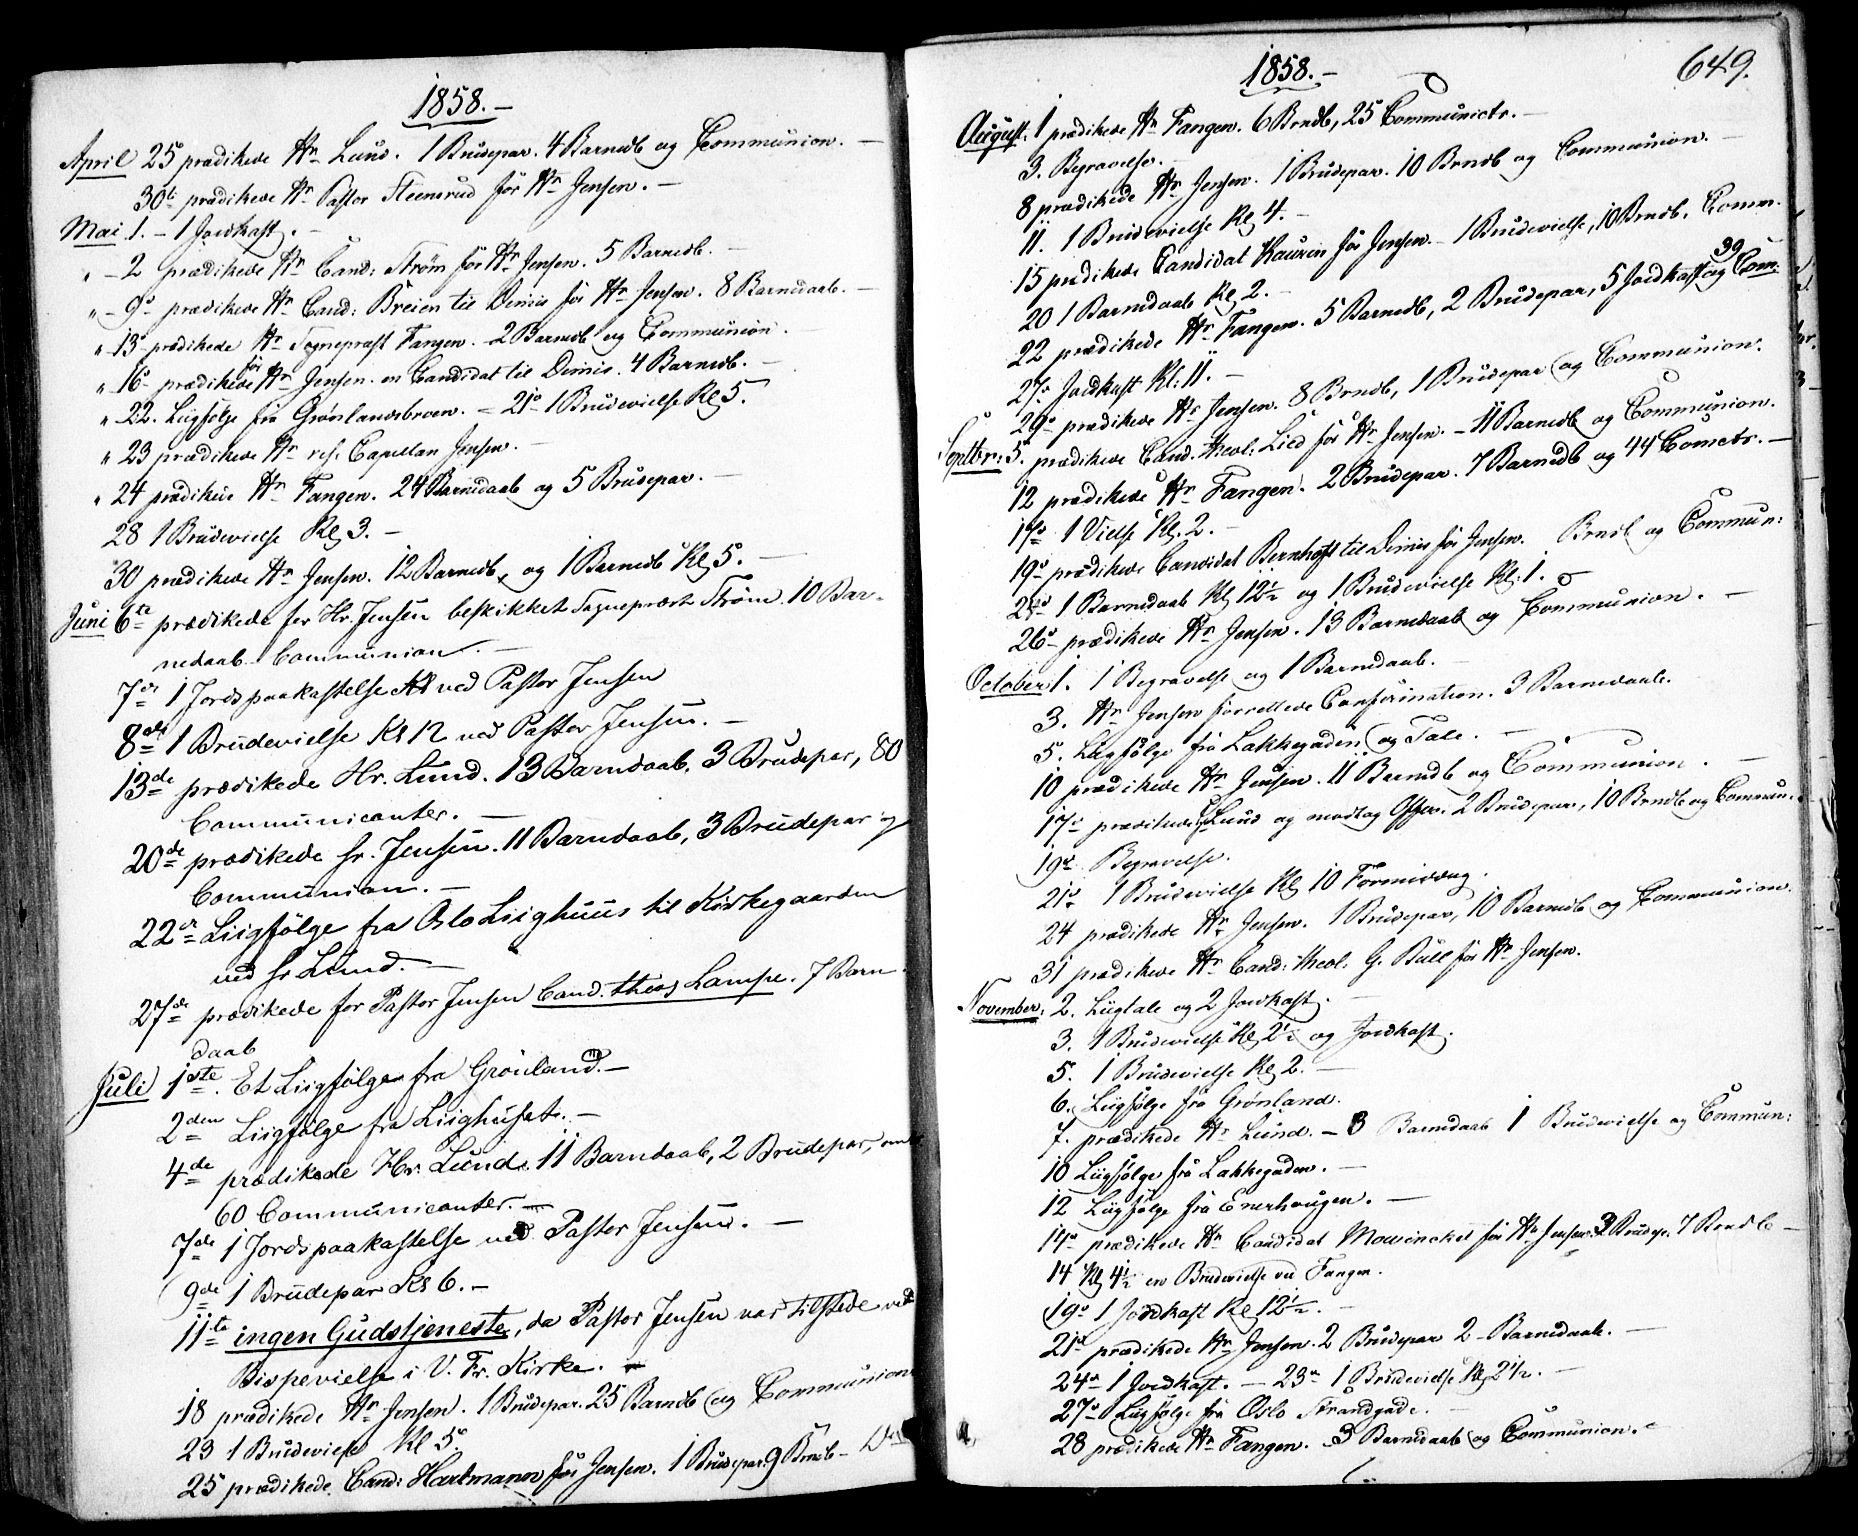 1858.-
April 25de prædikede Hr Lund. 1 Brudepar. 4 Barnedb og Communion. -
30te prædikede Hr Pastor Steensrud for Hr Jensen. -
Mai 1. - 1 Jordkast. -
" - 2 prædikede Hr Cand: Strøm for Hr Jensen. 5 Barnedb. -
" - 9de prædikede Hr Cand: Breien til Dimis for Hr Jensen. 8 Barnedaab. -
" - 13de prædikede Hr Sognepræst Fangen. 2 Barnedb og Communion. -
" 16de prædikede for Hr Jensen en Candidat til Dimis. 4 Barnedb. -
" 22. Liigfølge fra Grønlandsbroen. - 21de 1 Brudevielse Kl 5.
" 23 prædikede Hr res. Capellan Jensen. -
" 24 prædikede Hr Fangen. 24 Barnedaab og 5 Brudepar. -
28 1 Brudevielse Kl 3. -
30 prædikede Hr Jensen. 12 Barnedb og 1 Barnedb Kl 5. -
Juni 6te prædikede for Hr. Jensen beskikket Sognepræst Strøm. 10 Bar-
nedaab. Communion. -
7de 1 Jordspaakastelse ved Pastor Jensen
8de 1 Brudevielse Kl 12 ved Pastor Jensen. -
13de prædikede Hr. Lund. 13 Barndaab, 3 Brudepar, 80
Communicanter. -
20de prædikede hr. Jensen. 11 Barndaab, 3 Brudepar og
Communion. -
22de Liigfølge fra Oslo Liighuus til Kirkegaarden
ved hr Lund. -
27de prædikede for Pastor Jensen Cand. theol Lampe. 7 Barn-
daab
Juli 1ste. Et Liigfølge fra Grønland. -
2den Liigfølge fra Liighuset. -
4de prædikede Hr. Lund. 11 Barndaab, 2 Brudepar, omtr
60 Communicanter. -
7de 1 Jordspaakastelse ved Pastor Jensen. -
9de 1 Brudepar Kl 6. -
11te ingen Gudstjeneste, da Pastor Jensen var tilstede ved
Bispevielse i V. Fr. Kirke.
18 prædikede Hr Jensen. 1 Brudepar. 25 Barnedb og Communion
23 1 Brudevielse Kl 5.
25 prædikede Cand: Hartmann for Jensen. 1 Brudepar. 9 Brndb -
1858. -
649.
August. 1 prædikede Hr Fangen. 6 Brndb, 25 Communictr. -
3. Begravelse. -
8 prædikede Hr Jensen. 1 Brudepar. 10 Brndb og Communion. -
11. 1 Brudevielse Kl 4. -
15 prædikede Candidat Kaurin for Jensen - 1 Brudevielse, 10 Brndb. Comm.
20 1 Barnedaab Kl 2. -
22 prædikede Hr Fangen. 5 Barnedb, 2 Brudepar, 5 Jordkast og 39 Com.
27. Jordkast Kl: 11. -
29de prædikede Hr Jensen. 8 Brndb, 1 Brudepar og Communion.
Septbr: 5. prædikede Cand. theol: Lied for Hr Jensen. - 11 Barnedb og Communion.
12 prædikede Hr Fangen. 2 Brudepar. 7 Barnedb og 44 Comctr. -
17de 1 Vielse Kl. 2. -
19de prædikede Candidat Bernhoft til Dimis for Jensen. Brndb og Commun:
1 Barnedaab Kl 12½ og 1 Brudevielse Kl: 1.
26de prædikede Hr Jensen. 13 Barnedaab og Communion. -
October. 1. 1 Begravelse og 1 Barnedaab. -
3. Hr Jensen forrettede Confirmation. 3 Barnedaab.
5. Liigfølge fra Lakkegaden og Tale. -
10 prædikede Hr Jensen. 11 Barnedb og Communion. -
17de prædikede Lund og modtog Offer. 2 Brudepar, 10 Brndb og Commun.
19de Begravelse.
21de 1 Brudevielse Kl 10 Formiddag.
24 prædikede Hr Jensen. 1 Brudepar, 10 Barnedb og Communion.
31 prædikede Hr Cand: theol: G. Bull for Hr Jensen.
November. 2. Liigtale og 2 Jordkast. -
3. 1 Brudevielse Kl 2½ og Jordkast.
5. 1 Brudevielse Kl 2. -
6. Liigfølge fra Grønland.
7. prædikede Hr Lund. - 3 Barnedaab 1 Brudevielse og Commun:
10 Liigfølge fra Lakkegaden. -
12 Liigfølge fra Enerhougen. -
14de prædikede Hr Candidat Mowinckel for Hr Jensen. 3 Brudep. 7 Brndb -
14 Kl 4½ en Brudevielse ved Fangen.
19de 1 Jordkast Kl 12½. -
21de prædikede Hr Jensen. 2 Brudepar 2 Barnedaab. -
24de 1 Jordkast. - 23de 1 Brudevielse Kl 2½. -
27de Liigfølge fra Oslo Strandgade. -
28 prædikede Hr Fangen. 3 Barnedaab og Communion. -